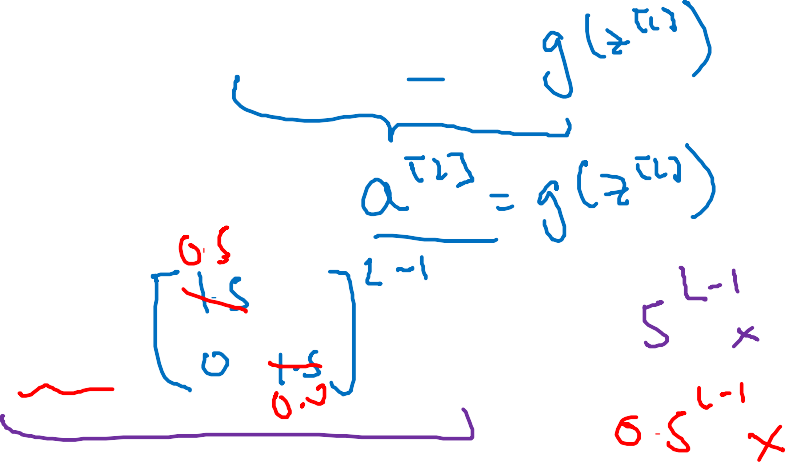 = g(z^[1])
a^[2] = g(z^[2])
0.5
[1.5
0 1.5]^L-1
0.5
5^L-1 x
0.5^L-1 x